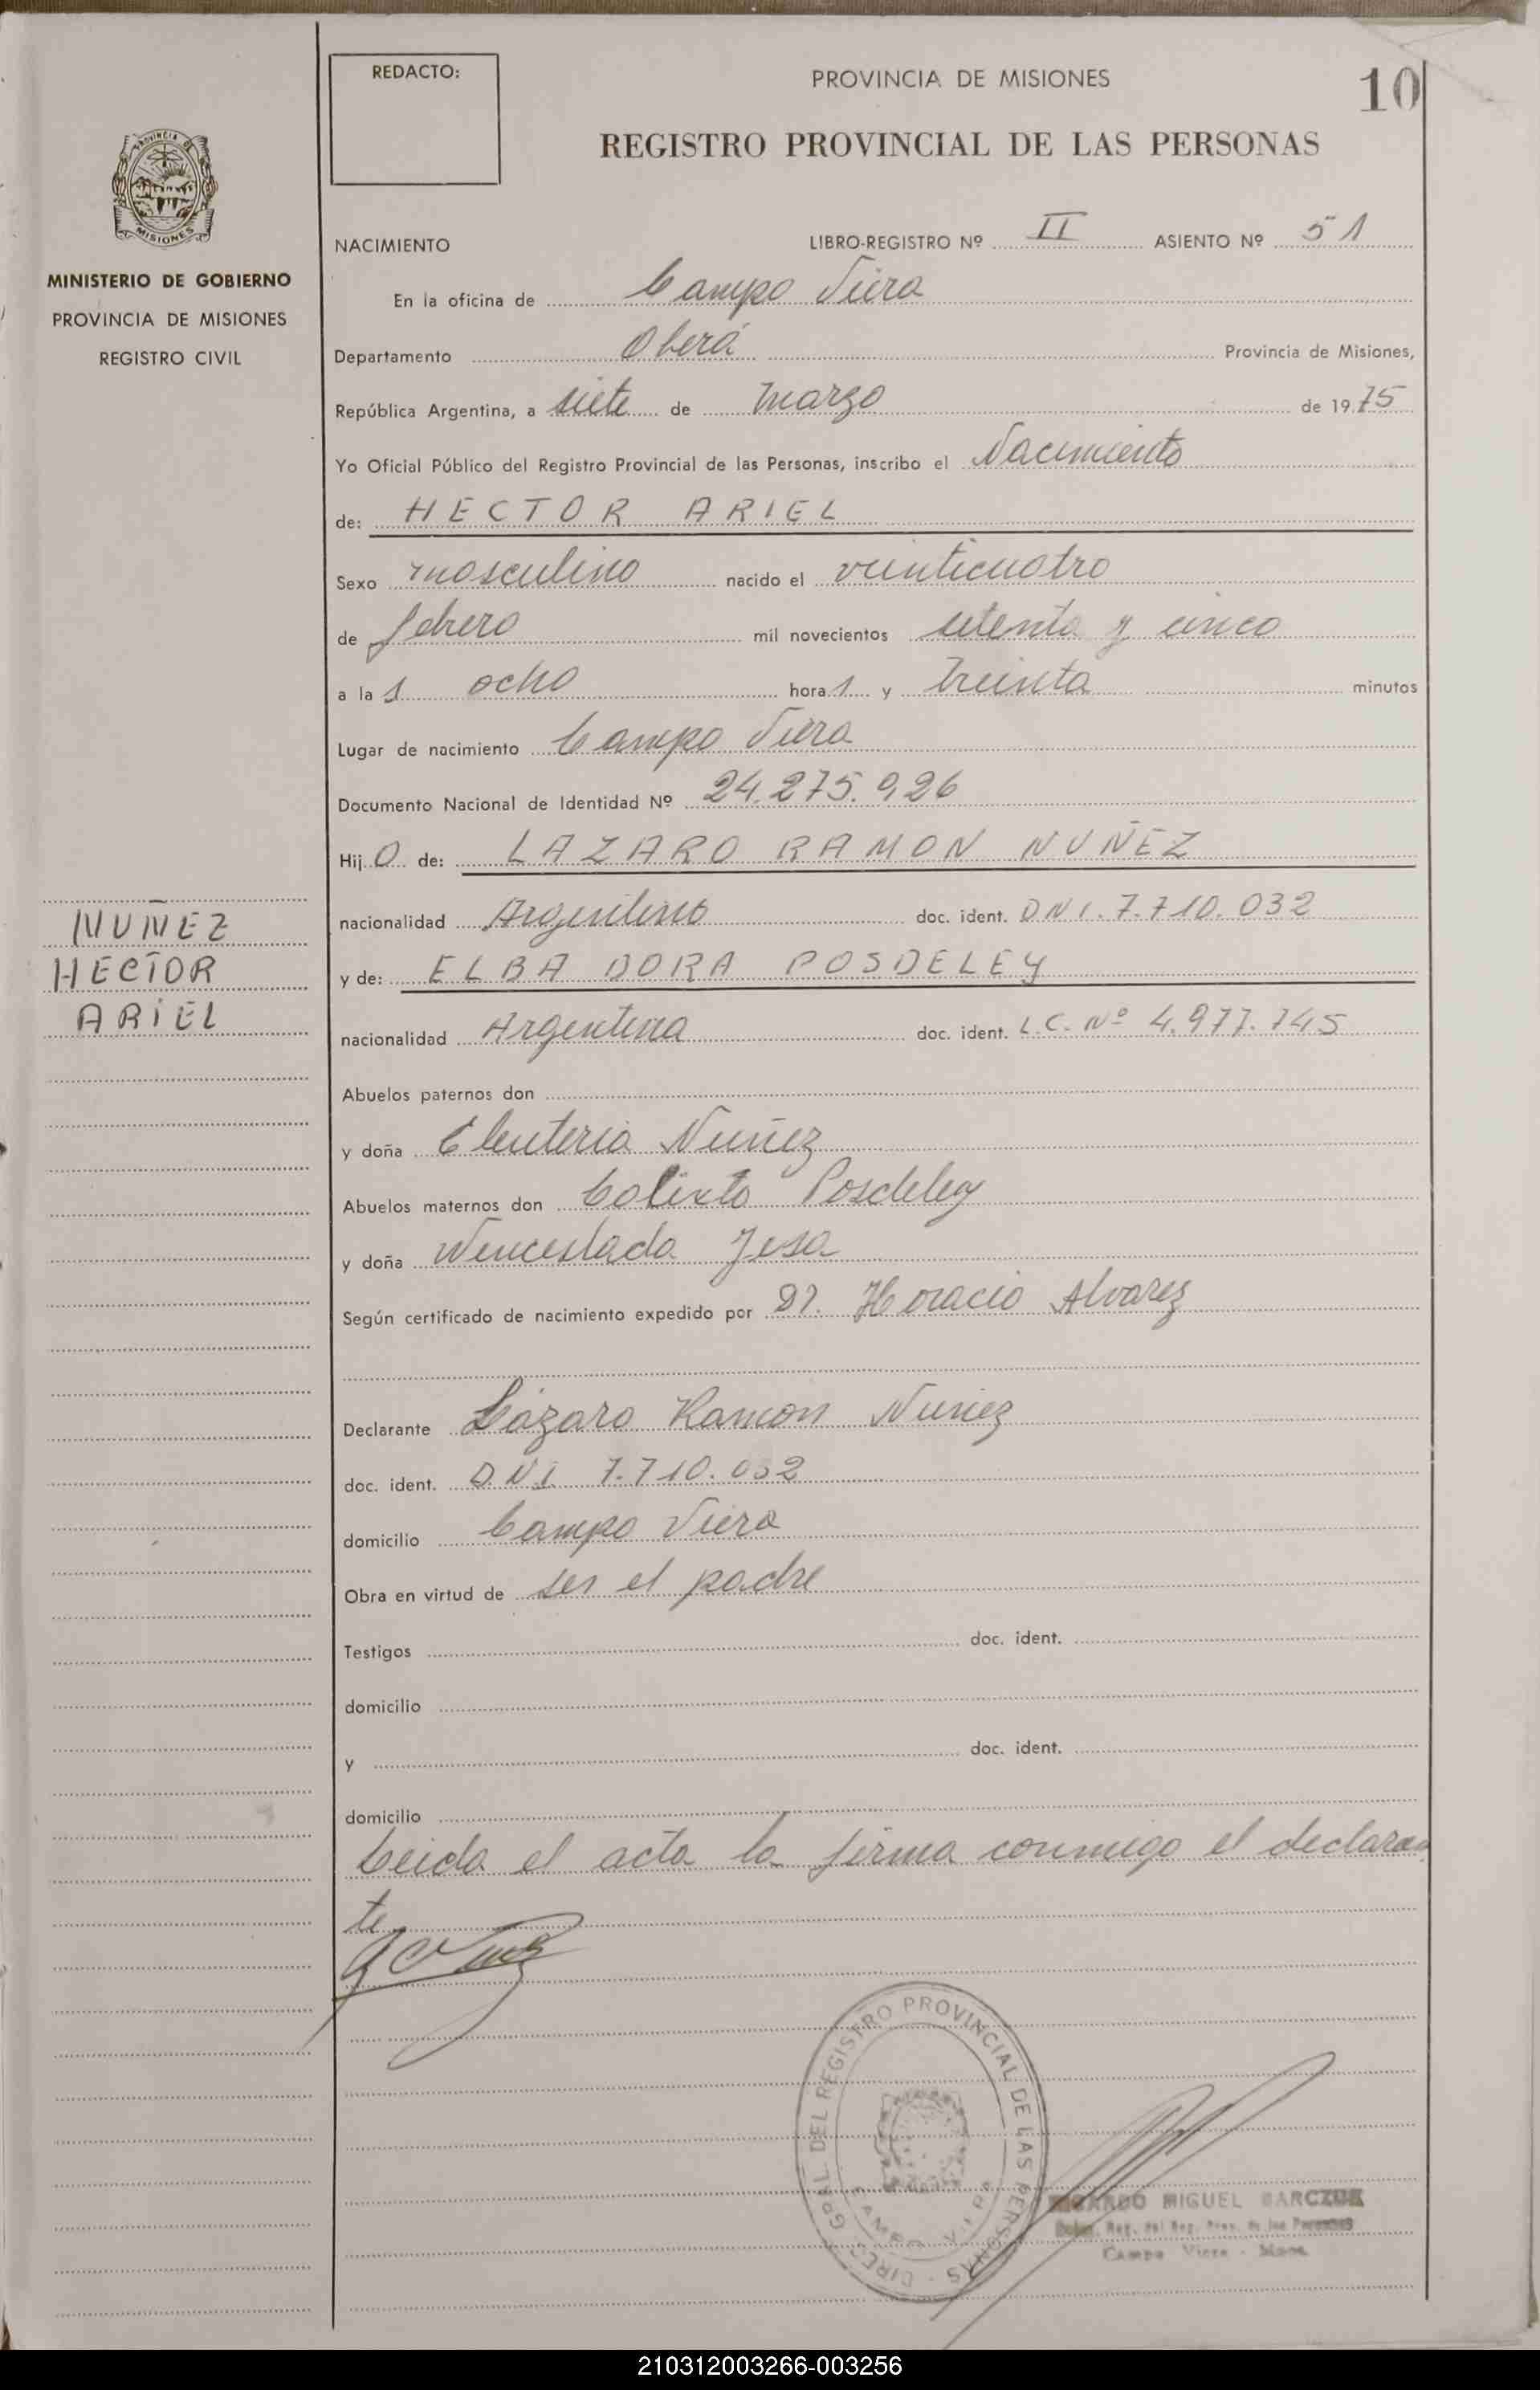 REDACTO:
PROVINCIA DE MISIONES
10
REGISTRO PROVINCIAL DE LAS PERSONAS
PROVINCIA DE
MISIONES
MINISTERIO DE GOBIERNO
PROVINCIA DE MISIONES
REGISTRO CIVIL
NACIMIENTO LIBRO-REGISTRO Nº II ASIENTO Nº 51
En la oficina de Campo Viera
Departamento Oberá Provincia de Misiones,
República Argentina, a siete de marzo de 1975
Yo Oficial Público del Registro Provincial de las Personas, inscribo el Nacimiento
de: HECTOR ARIEL
Sexo masculino nacido el veinticuatro
de febrero mil novecientos setenta y cinco
a la s ocho hora s y treinta minutos
Lugar de nacimiento Campo Viera
Documento Nacional de Identidad Nº 24.275.926
Hij o de: LAZARO RAMON NUÑEZ
nacionalidad Argentino doc. ident. DNI. 7.710.032
y de: ELBA DORA POSDELEY
nacionalidad Argentina doc. ident. L.C. Nº 4.977.745
NUÑEZ
HECTOR
ARIEL
Abuelos paternos don
y doña Eleuteria Nuñez
Abuelos maternos don Calixto Posdeley
y doña Wenceslada Jesa
Según certificado de nacimiento expedido por Dr. Horacio Alvarez
Declarante Lázaro Ramon Nuñez
doc. ident. D.N.I. 7.710.032
domicilio Campo Viera
Obra en virtud de ser el padre
Testigos doc. ident.
domicilio
y doc. ident.
domicilio
Leida el acta la firma conmigo el declaran
te
DIREC. GRAL. DEL REGISTRO PROVINCIAL DE LAS PERSONAS
CAMPO VIERA
RICARDO MIGUEL BARCZUK
Campo Viera - Mnes.
210312003266-003256